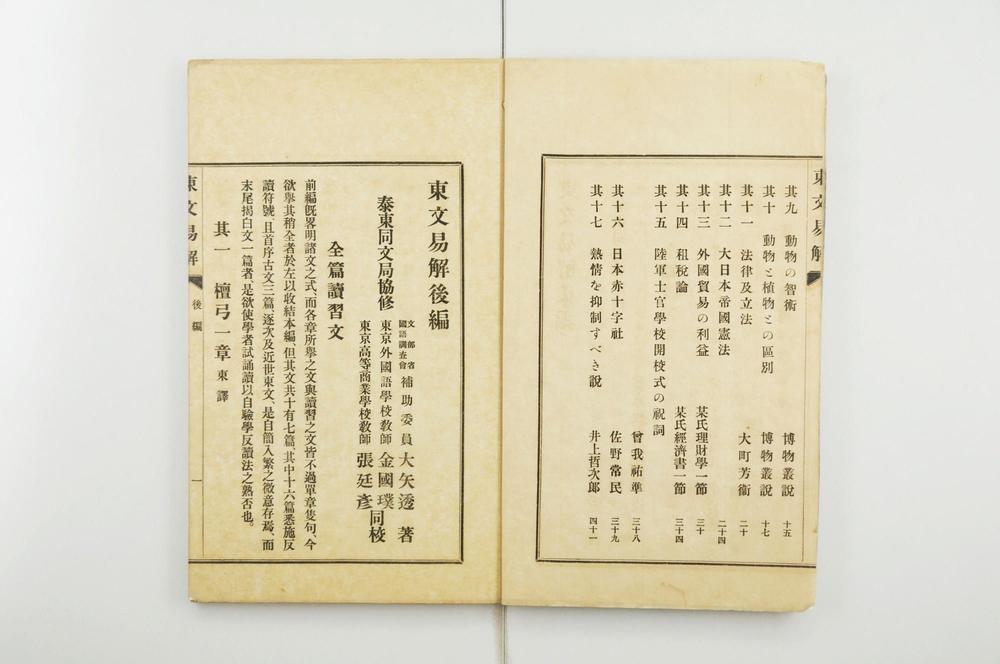 東文易解
其九　動物の智術　博物叢說　十五
其十　動物と植物との區別　博物叢說　十七
其十一　法律及立法　大町芳衞　二十
其十二　大日本帝國憲法　二十四
其十三　外國貿易の利益　某氏理財學一節　三十
其十四　租稅論　某氏經濟書一節　三十四
其十五　陸軍士官學校開校式の祝詞　曾我祐準　三十八
其十六　日本赤十字社　佐野常民　三十九
其十七　熱情を抑制すべき說　井上哲次郞　四十一
東文易解後編
文部省國語調查會補助委員　大矢透　著
泰東同文局協修　東京外國語學校敎師　金國璞
東京高等商業學校敎師　張廷彥　同校
全篇讀習文
前編旣畧明諸文之式、而各章所擧之文與讀習之文皆不過單章隻句、今
欲擧其稍全者於左以收結本編、但其文共十有七篇、其中十六篇悉施反
讀符號、且首序古文三篇、逐次及近世東文、是自簡入繁之微意存焉、而
末尾揭白文一篇者、是欲使學者試誦讀以自驗學反讀法之熟否也。
其一　檀弓一章　東譯
東文易解　後編　一